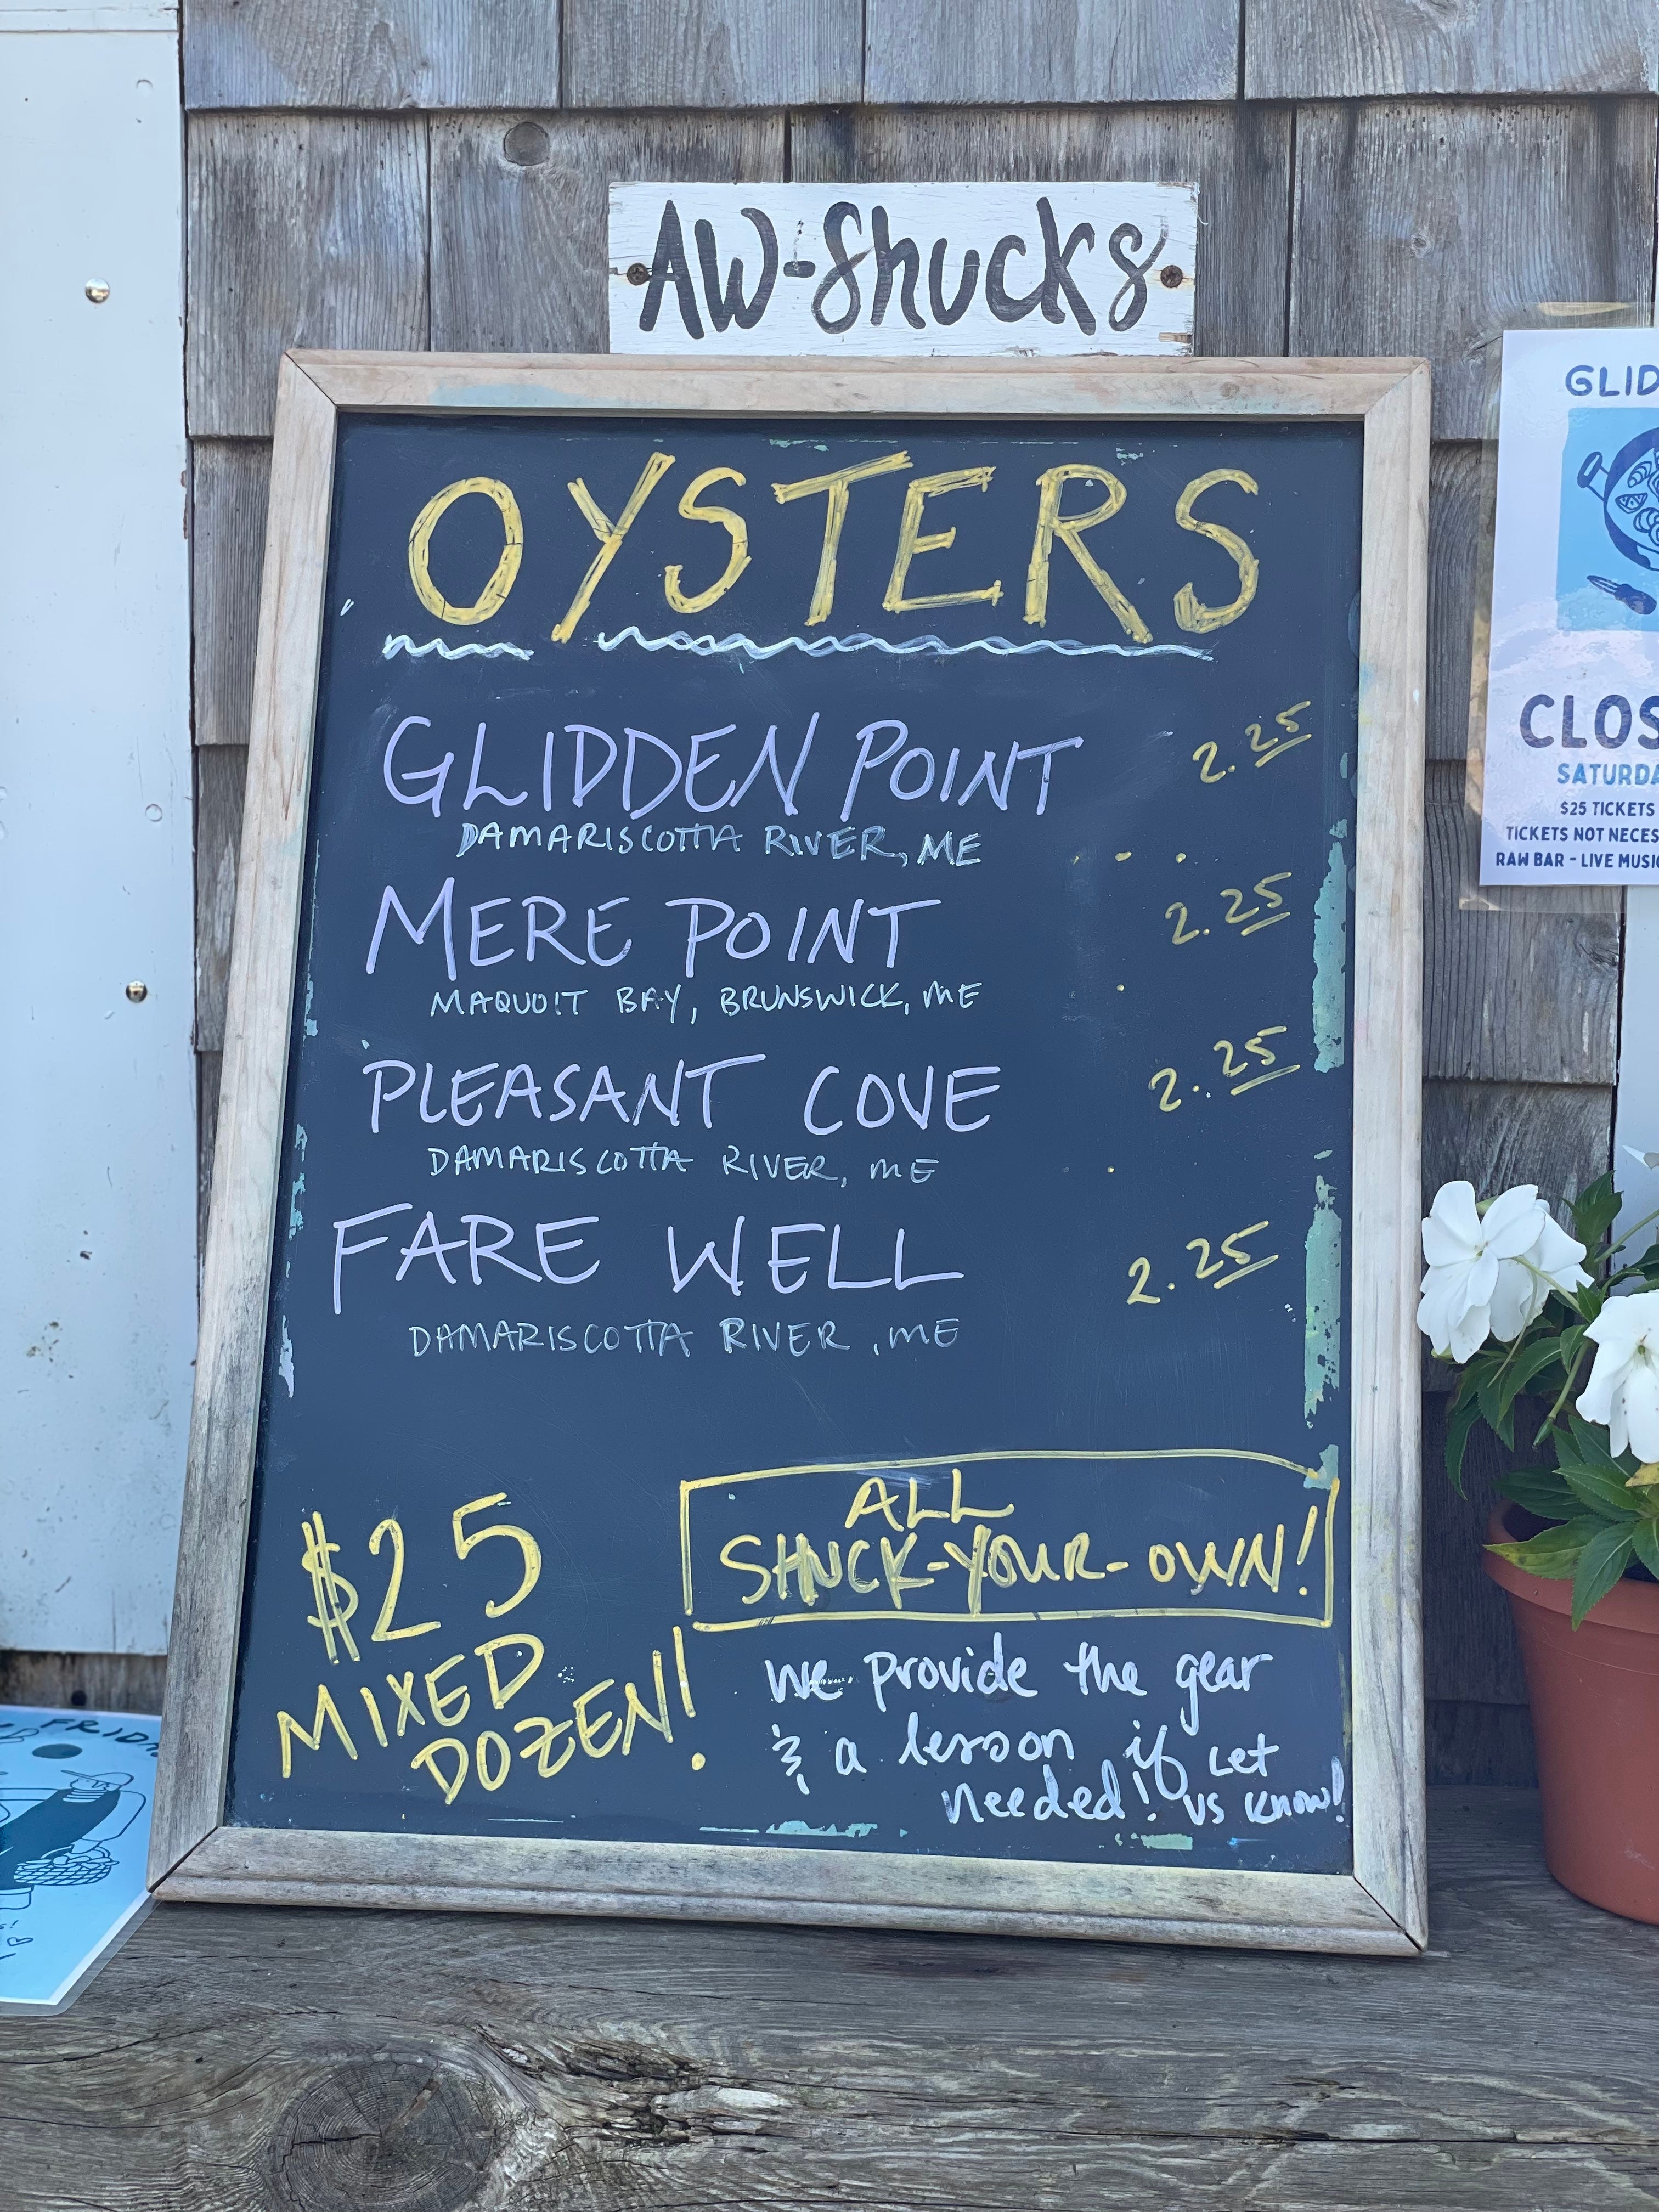 AW-Shucks
OYSTERS
GLIDDEN POINT 2.25
DAMARISCOTTA RIVER, ME
MERE POINT 2.25
MAQUOIT BAY, BRUNSWICK, ME
PLEASANT COVE 2.25
DAMARISCOTTA RIVER, ME
FARE WELL 2.25
DAMARISCOTTA RIVER, ME
$25
MIXED
DOZEN!
ALL
SHUCK-YOUR-OWN!
we provide the gear
& a lesson if
needed!
LET
US KNOW!
GLID
CLOS
SATURDA
$25 TICKETS
TICKETS NOT NECES
RAW BAR - LIVE MUSIC
FRIDA